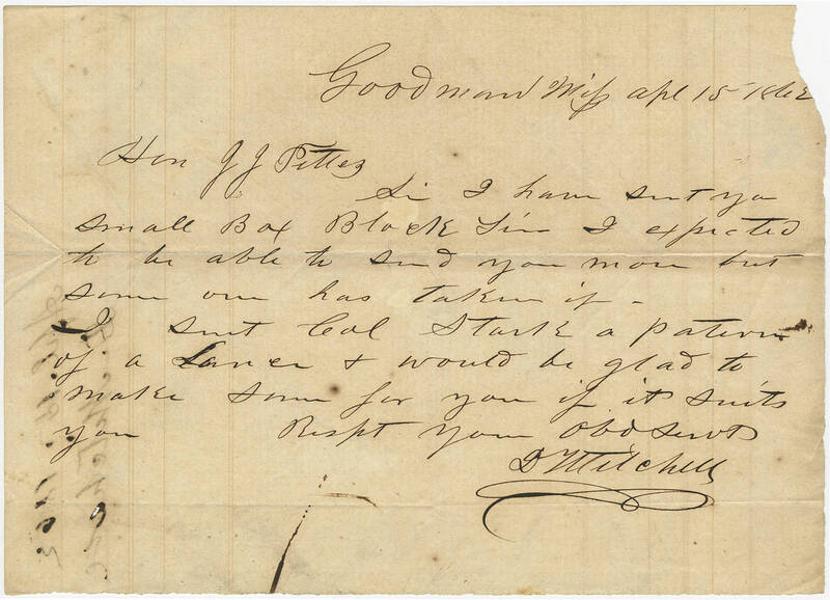 Goodman Miss apl 15 1862
Hon J J Pettes
Sir I have sent you
small Box Block Tin I expected
to be able to send you more but
some one has taken it -
I sent Col Stark a patern
of a Lance & would be glad to
make some for you if it suits
you Respt your Obd Servt
D Mitchell